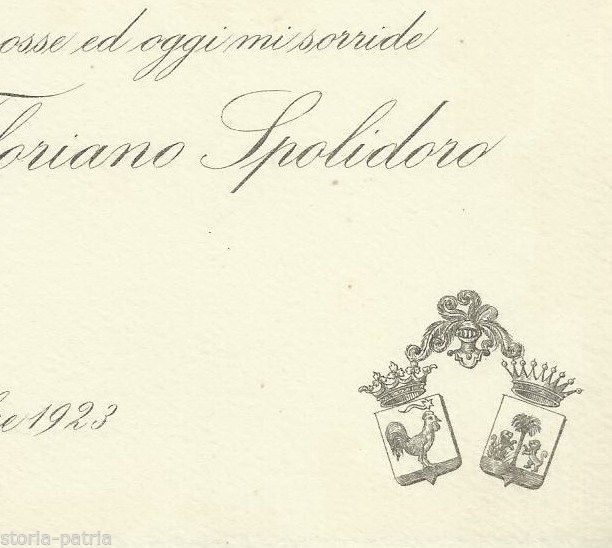 osse ed oggi mi sorride
loriano Spolidoro
re 1923
storia-patria